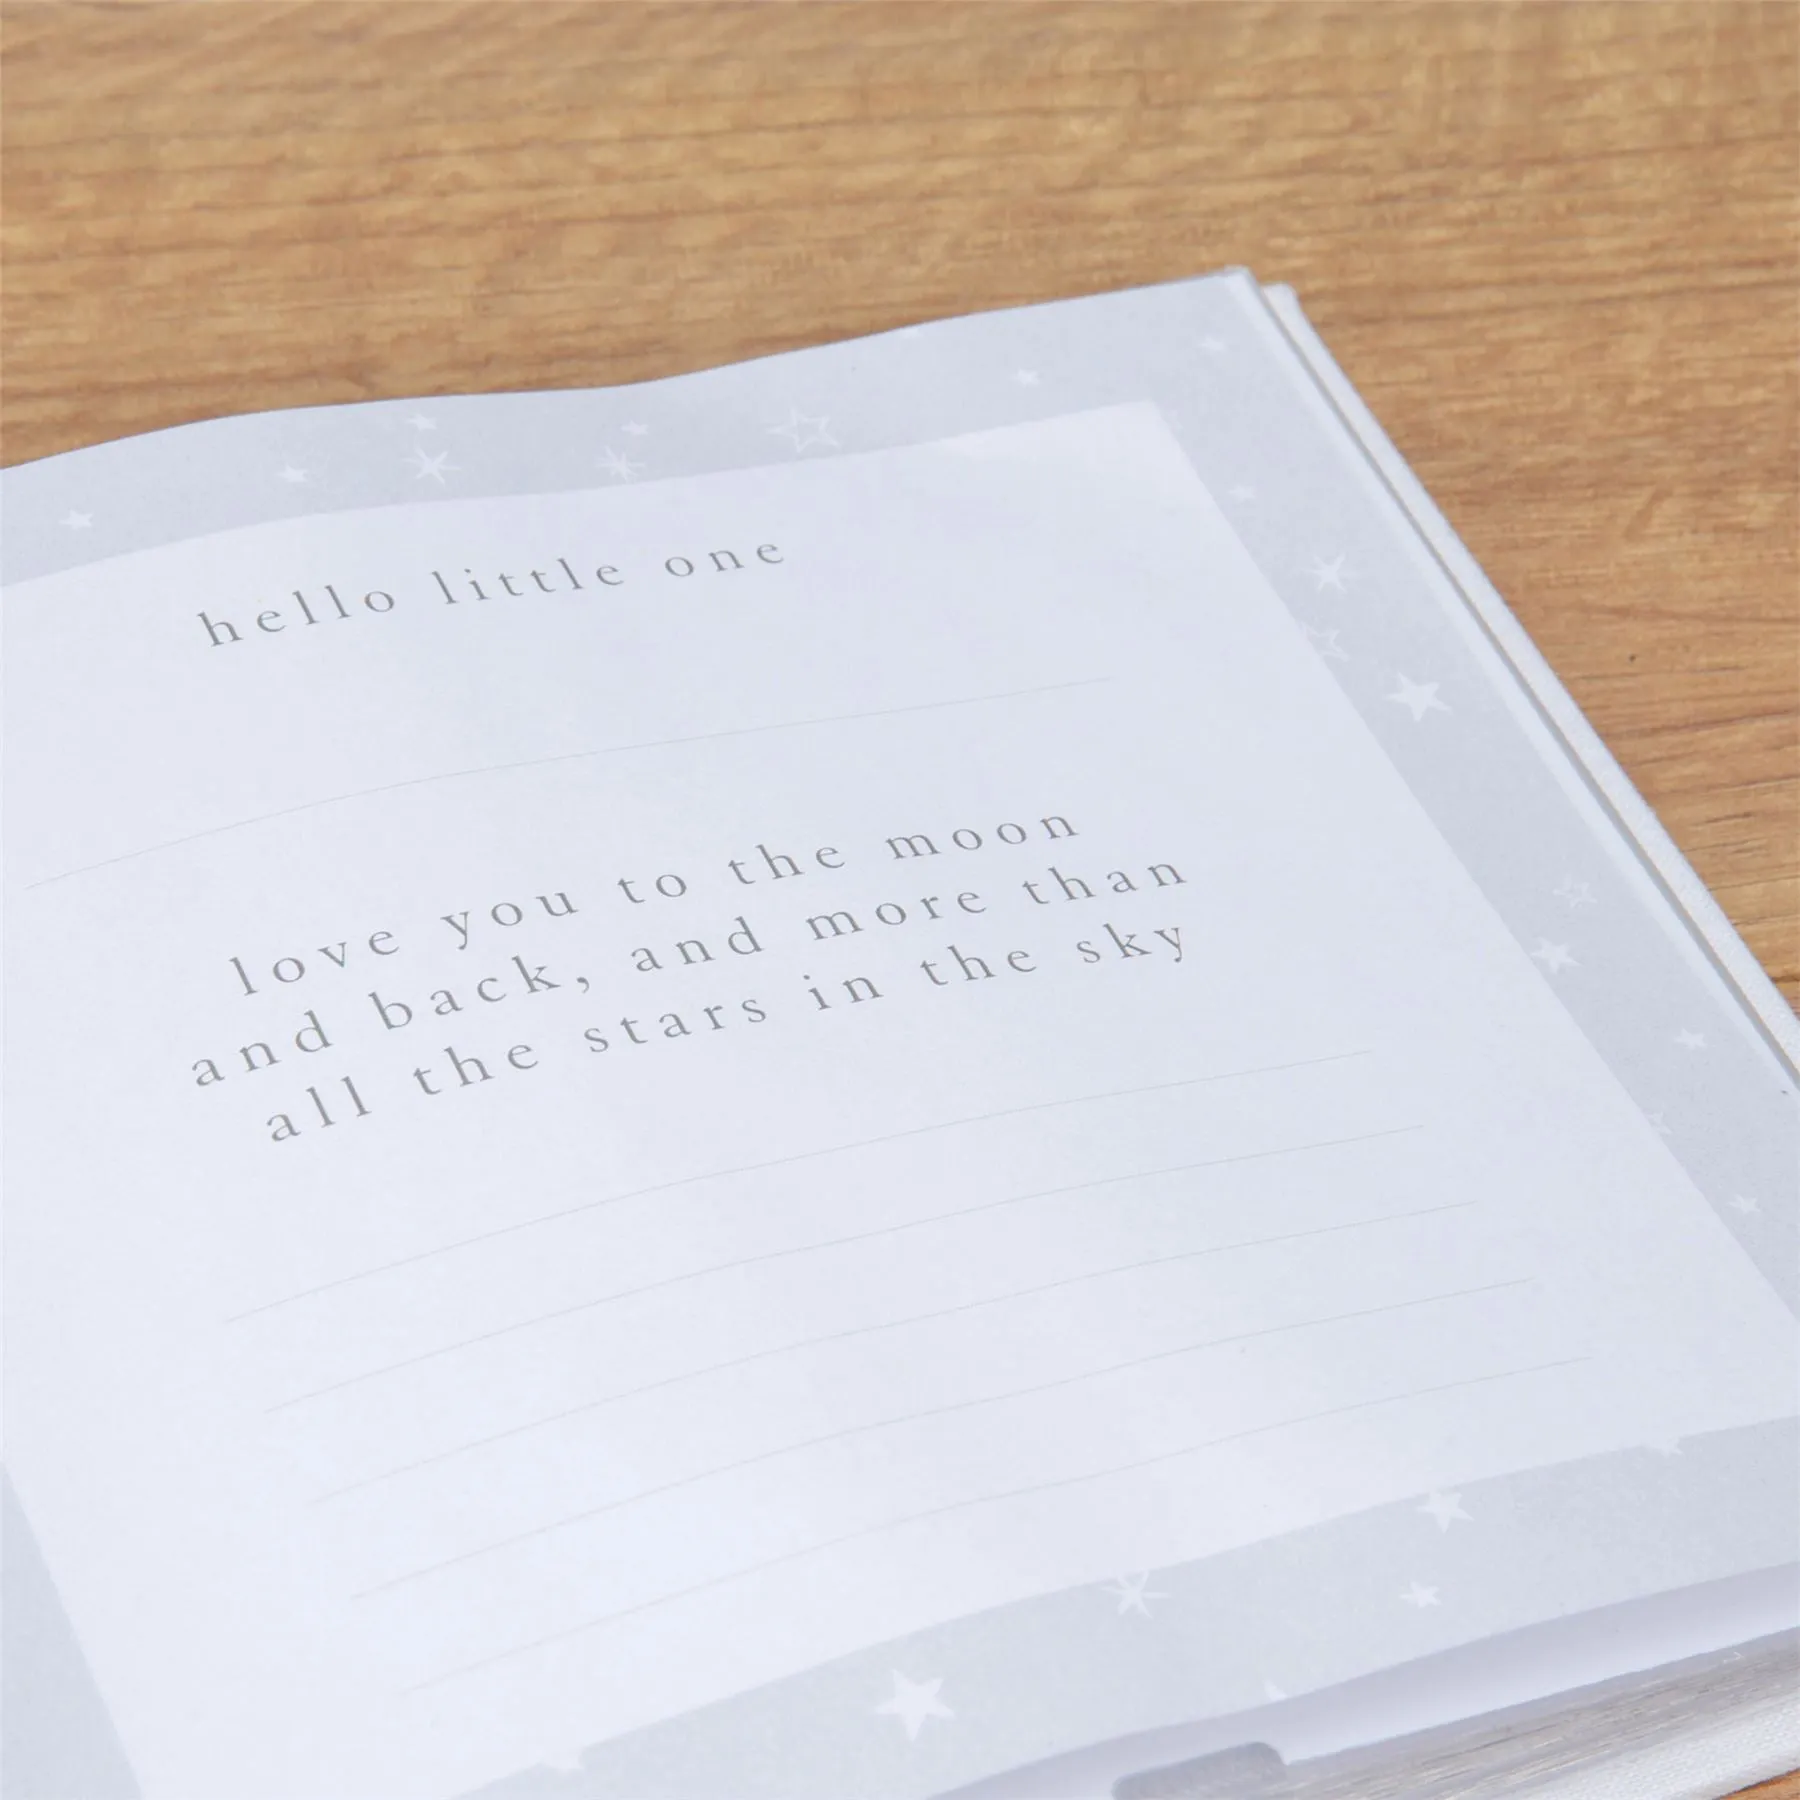 hello little one
love you to the moon
and back, and more than
all the stars in the sky